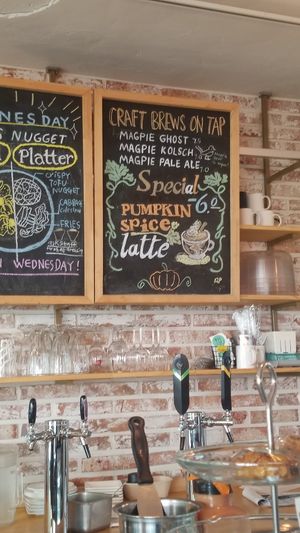 NESDAY
S NUGGET
Platter
CRISPY
TOFU
NUGGET
CABBAGE
FRIES
WEDNESDAY!
CRAFT BREWS ON TAP
MAGPIE GHOST
MAGPIE KOLSCH
MAGPIE PALE ALE 7.0
Special
6.0
PUMPKIN
SPICE
latte